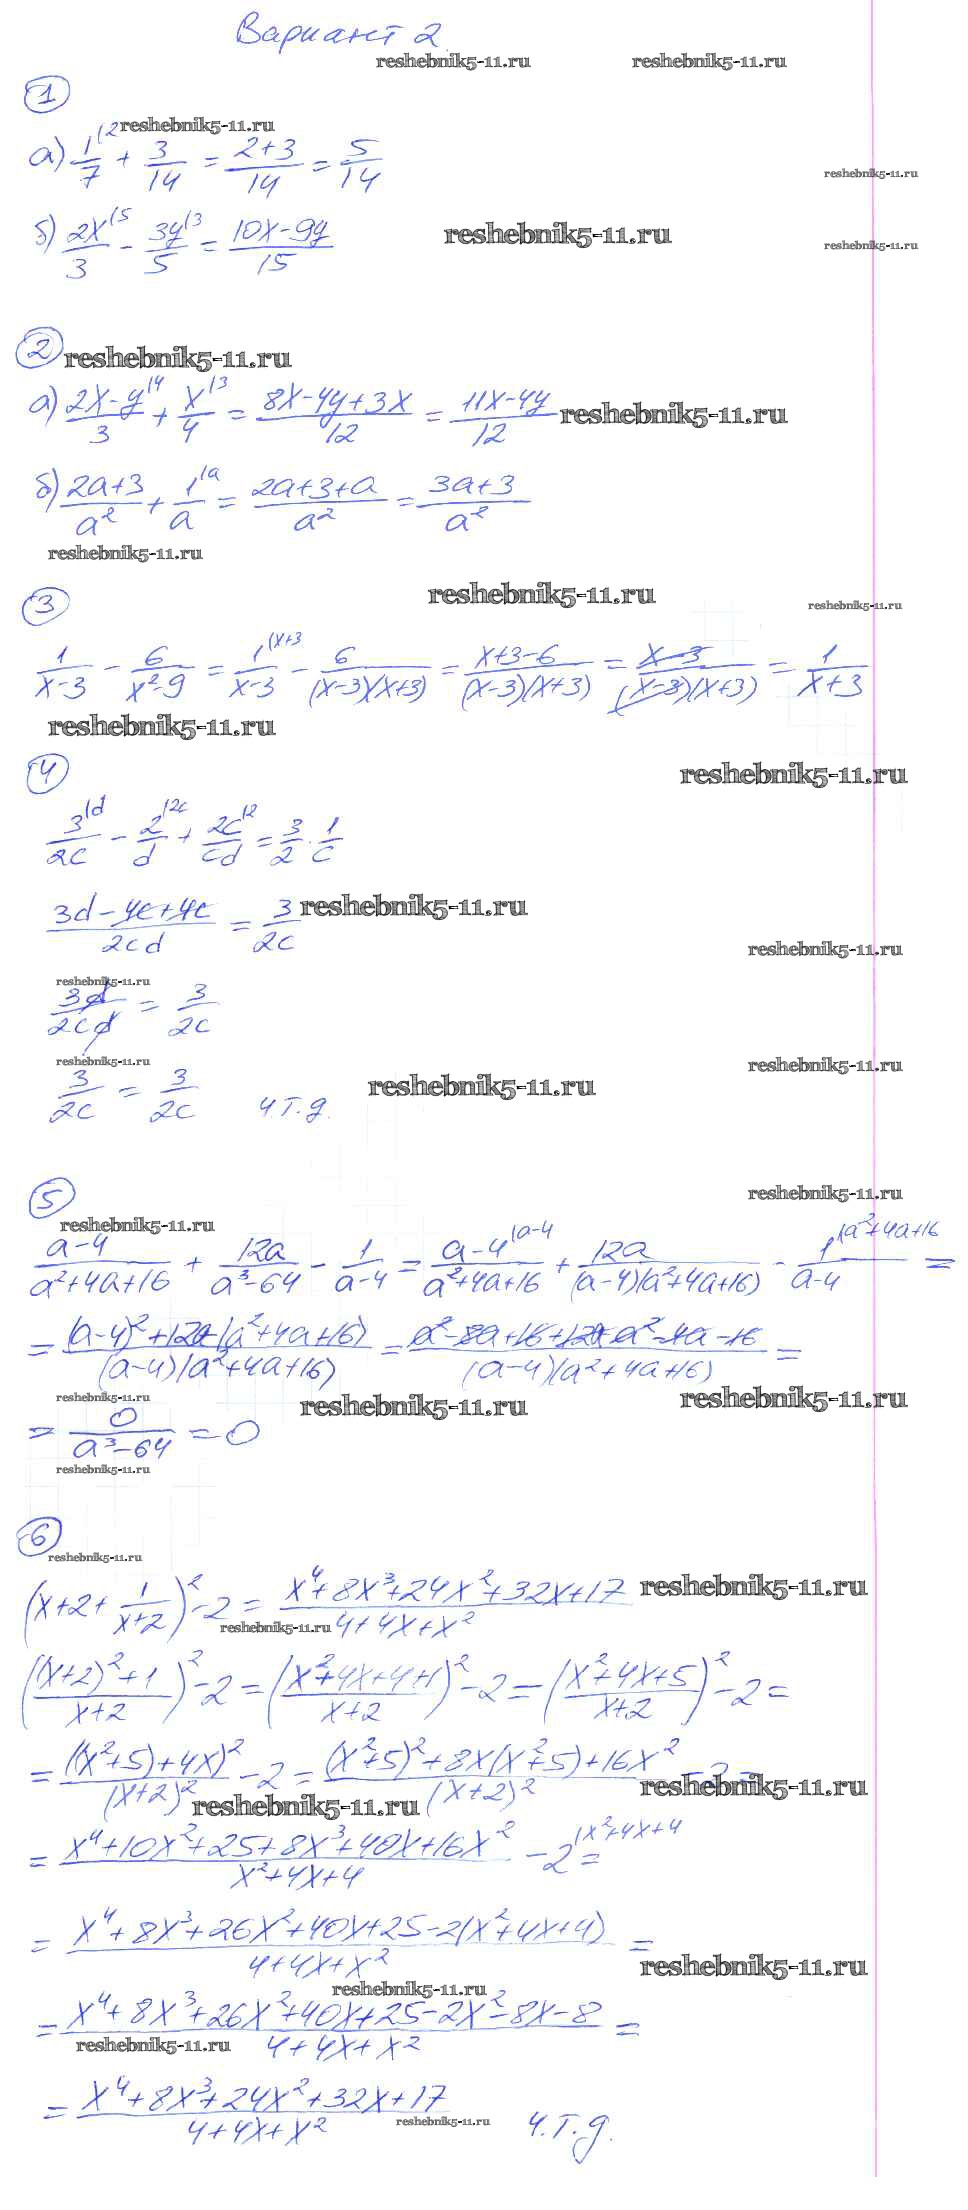 Вариант 2
reshebnik5-11.ru reshebnik5-11.ru
1
reshebnik5-11.ru
а) 1/7 (2 + 3/14 = (2+3)/14 = 5/14
reshebnik5-11.ru
б) 2x/3 (5 - 3y/5 (3 = (10x-9y)/15
reshebnik5-11.ru
reshebnik5-11.ru
2 reshebnik5-11.ru
а) (2x-y)/3 (4 + x/4 (3 = (8x-4y+3x)/12 = (11x-4y)/12
reshebnik5-11.ru
б) (2a+3)/a² + 1/a (a = (2a+3+a)/a² = (3a+3)/a²
reshebnik5-11.ru
reshebnik5-11.ru
3
reshebnik5-11.ru
1/(x-3) - 6/(x²-9) = 1/(x-3) (x+3 - 6/((x-3)(x+3)) = (x+3-6)/((x-3)(x+3)) = (x-3)/((x-3)(x+3)) = 1/(x+3)
reshebnik5-11.ru
4
reshebnik5-11.ru
3/2c (d - 2/d (2c + 2c/cd (2 = 3/2 · 1/c
(3d-4c+4c)/2cd = 3/2c
reshebnik5-11.ru
reshebnik5-11.ru
reshebnik5-11.ru
3d/2cd = 3/2c
reshebnik5-11.ru
reshebnik5-11.ru
3/2c = 3/2c ч.т.д.
reshebnik5-11.ru
5
reshebnik5-11.ru
reshebnik5-11.ru
(a-4)/(a²+4a+16) + 12a/(a³-64) - 1/(a-4) = (a-4)/(a²+4a+16) (a-4 + 12a/((a-4)(a²+4a+16)) - 1/(a-4) (a²+4a+16 =
= ((a-4)²+12a-(a²+4a+16))/((a-4)(a²+4a+16)) = (a²-8a+16+12a-a²-4a-16)/((a-4)(a²+4a+16)) =
reshebnik5-11.ru
reshebnik5-11.ru
reshebnik5-11.ru
= 0/(a³-64) = 0
reshebnik5-11.ru
6
reshebnik5-11.ru
(x+2+1/(x+2))²-2 = (x⁴+8x³+24x²+32x+17)/(4+4x+x²)
reshebnik5-11.ru
reshebnik5-11.ru
(((x+2)²+1)/(x+2))²-2 = ((x²+4x+4+1)/(x+2))²-2 = ((x²+4x+5)/(x+2))²-2 =
= ((x²+5)+4x)²/(x+2)² - 2 = ((x²+5)²+8x(x²+5)+16x²)/(x+2)² - 2 =
reshebnik5-11.ru
reshebnik5-11.ru
= (x⁴+10x²+25+8x³+40x+16x²)/(x²+4x+4) - 2 (x²+4x+4 =
= (x⁴+8x³+26x²+40x+25-2(x²+4x+4))/(4+4x+x²) =
reshebnik5-11.ru
reshebnik5-11.ru
= (x⁴+8x³+26x²+40x+25-2x²-8x-8)/(4+4x+x²) =
reshebnik5-11.ru
= (x⁴+8x³+24x²+32x+17)/(4+4x+x²) ч.т.д.
reshebnik5-11.ru